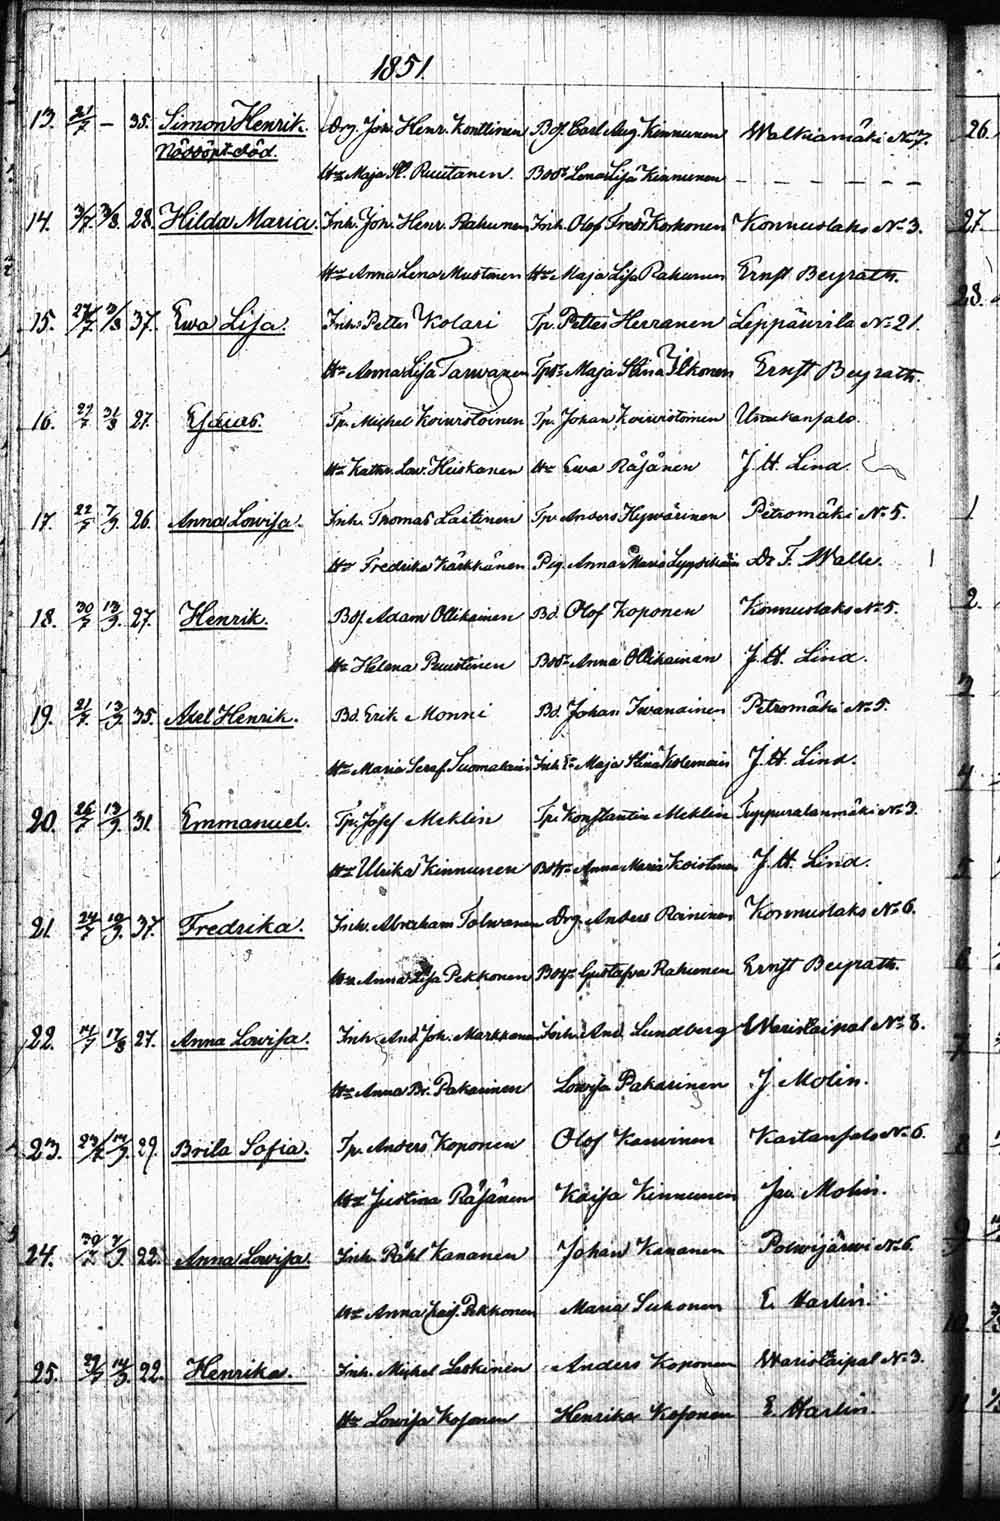 1851.
13. 21/7 – 35. Simon Henrik. Drg. Joh. Henr. Konttinen Bof. Carl Aug. Kinnunen Walkiamäki No 7. 26.
Nöddöpt död.
Hu Maja St. Ruutanen. Bodr Lena Lisa Kinnunen
14. 3/7. 3/8. 28. Hilda Maria. Inh. Joh. Henr. Rahunen Inh. Olof Fredr Korhonen Konnuslaks No 3. 27.
Hu Anna Lena Mustonen Hu Maja Lisa Rahunen Ernst Beyrath.
28.
15. 27/7 3/8 37. Ewa Lisa. Inh. Petter Kolari Tp. Petter Herranen Leppäwirta No 21.
Hu Anna Lisa Tarwanen Maja Stina Ilkonen Ernst Beyrath.
16. 27/7 31/8 27. Esaias. Tp. Michel Koiwistoinen Tp. Johan Koiwistoinen
Hu Kathr. Lov. Heiskanen Hu Ewa Räsänen J. H. Lind.
17. 22/7 7/9 26. Anna Lowisa. Inh. Thomas Laitinen Tp. Anders Hywärinen Petromäki No 5.
Hu Fredrika Kärkkänen Pig. Anna Maria Dr F. Walle.
18. 30/7 13/9. 27. Henrik. Bof. Adam Ollikainen Bd. Olof Koponen Konnuslaks No 5. 2.
Hu Helena Puustinen Bodr Anna Ollikainen J. H. Lind.
19. 21/7. 13/9 35. Axel Henrik. Bd. Erik Monni Bd. Johan Iwanainen Petromäki No 5. 3
Hu Maria Seraf. Suomalain Inh. Maja Stina J. H. Lind. 4
20. 26/7 13/9 31. Emmanuel. Tp. Josef Meklin Tp. Konstantin Meklin Tuppuralanmäki No 3.
Hu Ulrika Kinnunen Anna Maria Koistinen J. H. Lind. 5
21. 24/7 10/9. 37. Fredrika. Inh. Abraham Tolwanen Drg. Anders Raininen Konnuslaks No 6.
Hu Anna Lisa Pekkonen Gustafva Rahunen Ernst Beyrath. 6
22. 14/7 17/8 27. Anna Lowisa. Inh. And. Joh. Markkanen Inh. And. Lundberg Waristaipal No 8. 7
Hu Anna Br. Pakarinen Lowisa Pakarinen J. Molin.
23. 23/7 14/9. 29. Brita Sofia. Tp. Anders Koponen Olof Karwinen Kartansalo No 6. 8
Hu Justina Räsänen Kaisa Kinnunen Jac. Molin.
24. 30/7 7/9. 22. Anna Lowisa. Inh. Påhl Kananen Johan Kananen Polwijärwi No 6. 9
Hu Anna Kais. Pekkonen Maria Suhonen E. Harlin. 10
25. 29/7 14/9. 22. Henrika. Inh. Michel Laitinen Anders Koponen Waristaipal No 3.
Hu Lowisa Koponen Henrika Koponen E. Harlin. 11